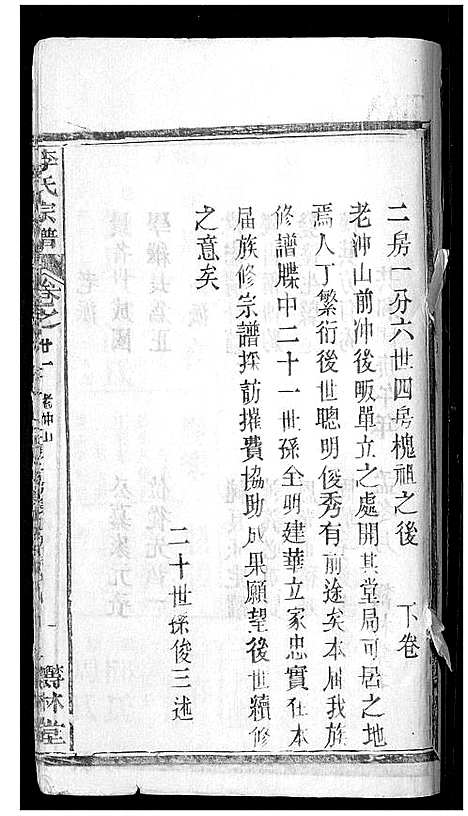 二房一分六世四房槐祖之後　下卷
老沖山前沖後畈單立之處開其堂局可居之地
焉人丁繁衍後世聰明俊秀有前途矣本屆我族
修譜牒中二十一世孫全明建華立家忠實在本
屆族修宗譜採訪摧費協助成果願望後世續修
之意矣
二十世孫俊三述
李氏宗譜
卷之廿一
老沖山
一
林堂